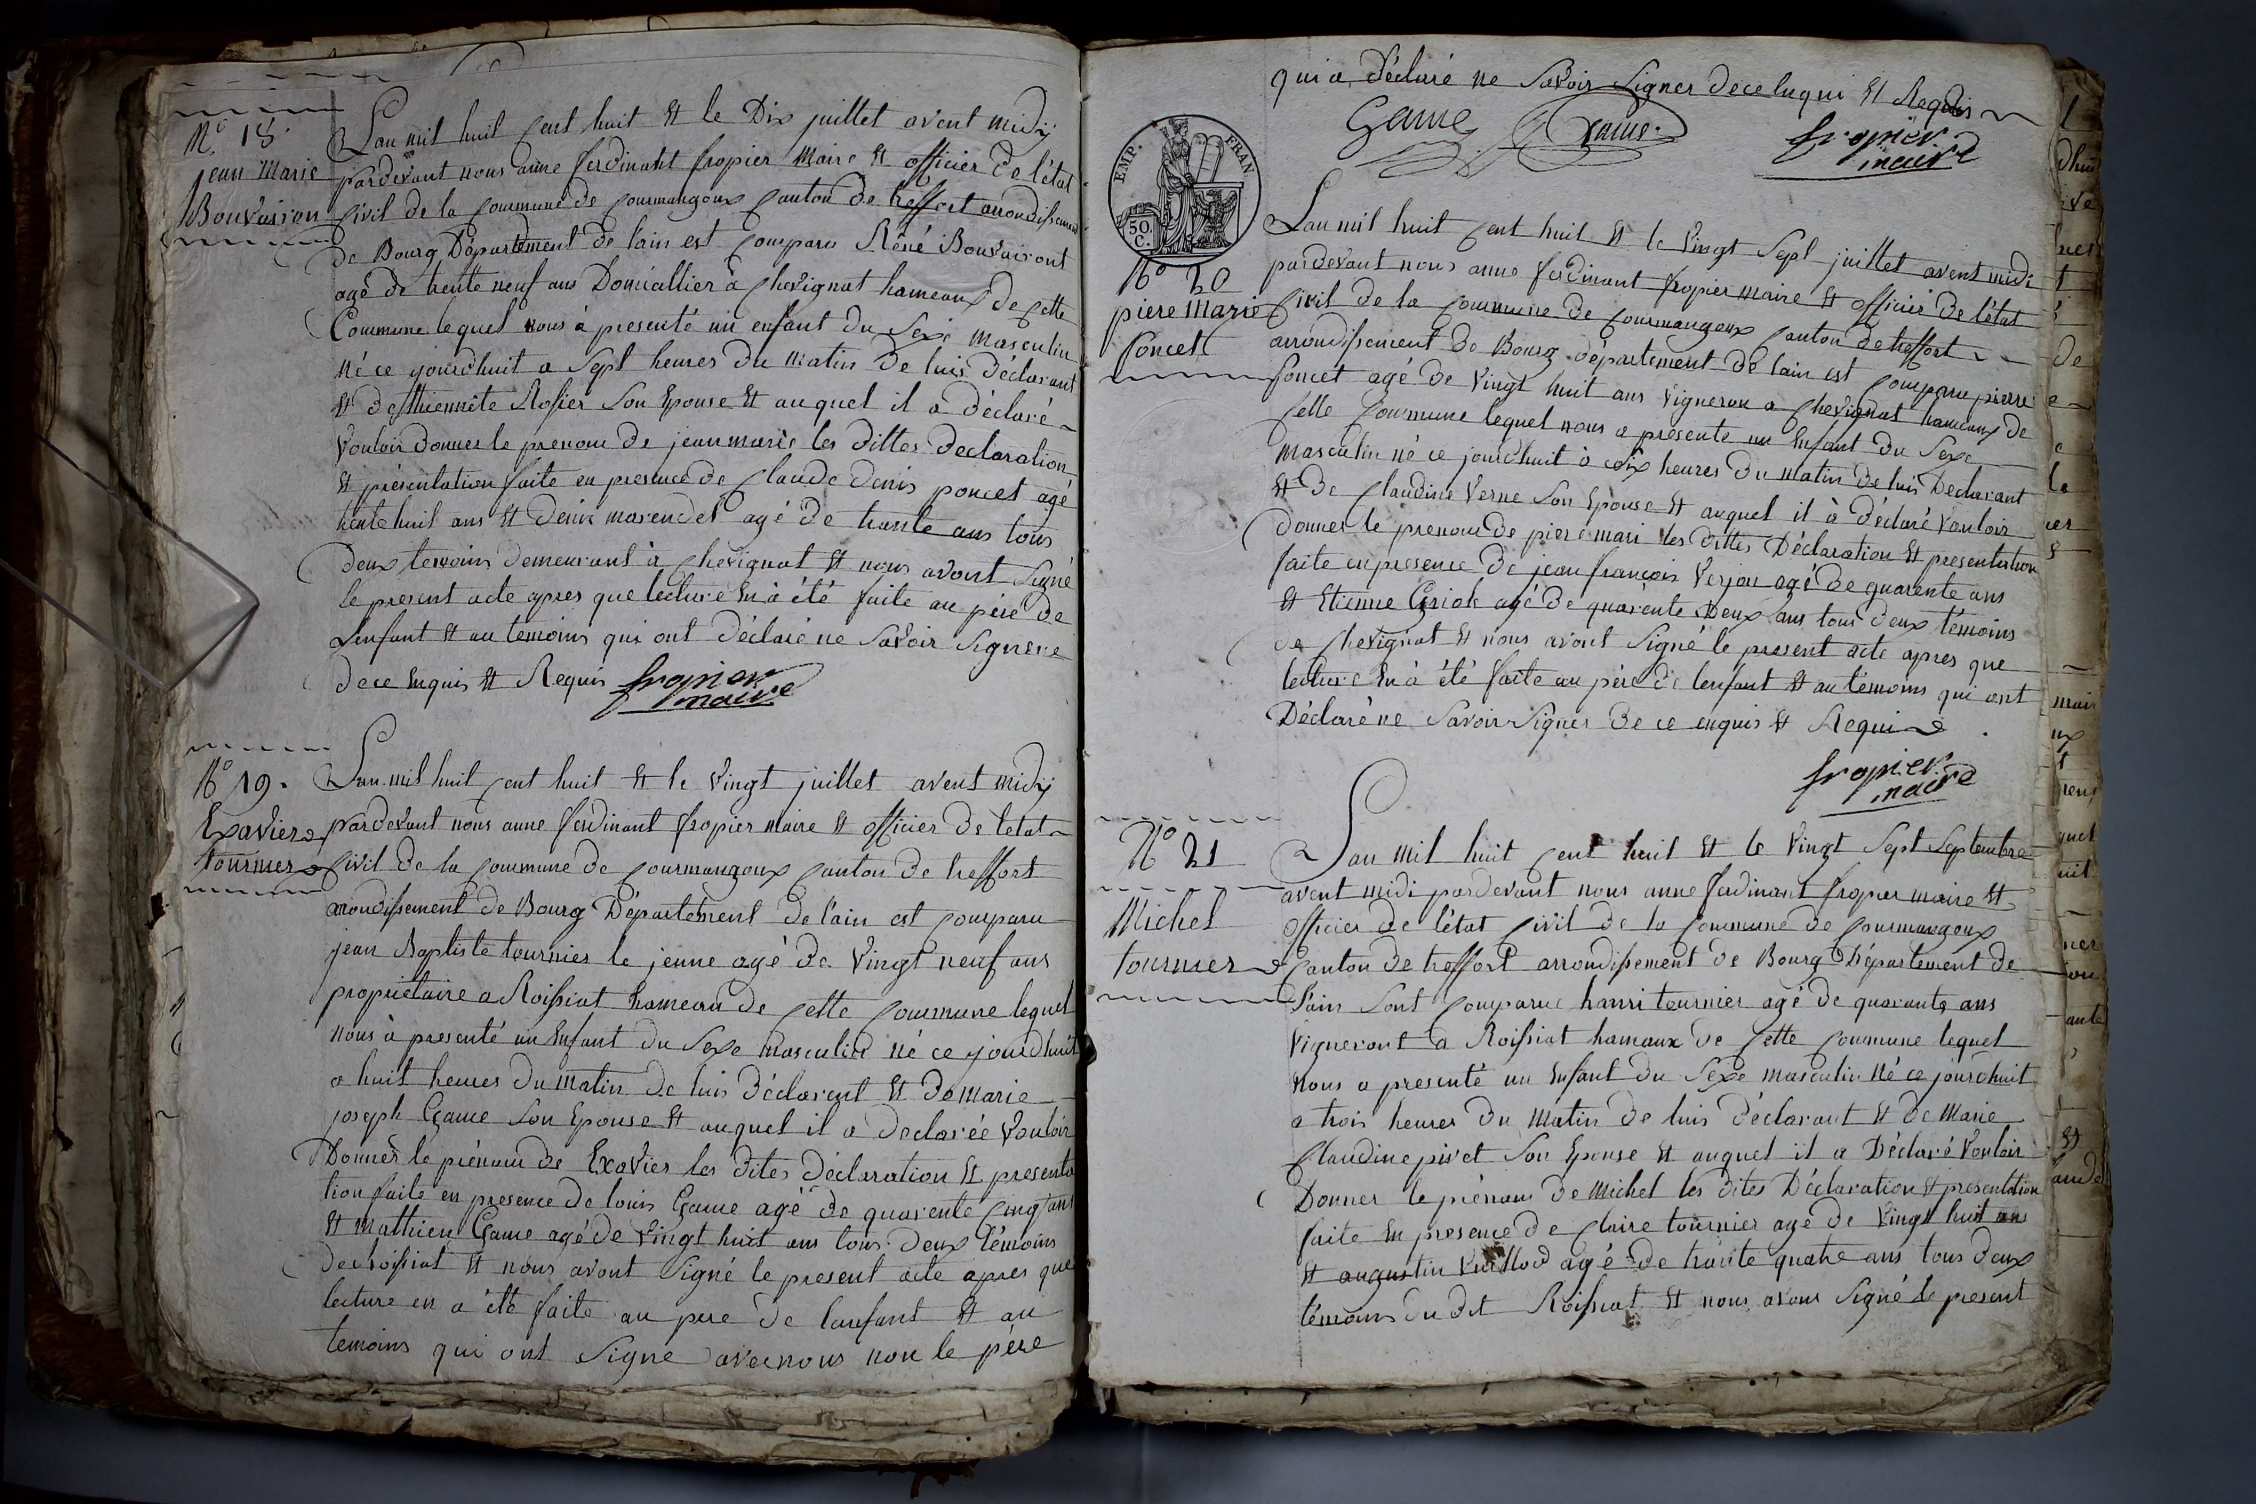 N.° 18
jean Marie
Bouvairon
Lan mil huil Cent huit Et le Dix juillet avent midij
pardevant nous anne ferdinant fropier Maire Et officier De l'état
Civil de la Commune de Courmangoux Canton De treffort arrondissement
De Bourg Département De lain est Comparu Réné Bouvairont
agé de trente neuf ans Domicillier à Chevignat hameaux de Cette
Commune lequel nous à presenté un enfant du Sexe masculin
Né ce jourdhuit a Sept heures Du Matin De luis Déclarant
Et Desthiennete Rosier Son Epouse Et auquel il a déclaré
Vouloir donner le prenom de jean marie les dittes Declaration
Et présentation faite en presence de Claude Denis poncet agé
trente huil ans Et denis marendet agé de trante ans tous
deux temoins demeurant à Chevignat Et nous avont Signé
le present acte apres que lecture En à été faite au père de
Lenfant Et au temoins qui ont déclaré ne Savoir Signere
dece Enquis Et Requis fropier
maire
N° 19.
Exavier
tournier
Lan mil huil Cent huil Et le Vingt juillet avent Midij
pardevant nous anne ferdinant fropier maire Et officier De letat
Civil de la Commune de Courmangoux Canton de treffort
arrondissement de Bourg Département de l'ain est Comparu
jean Baptiste tournier le jeune agé de Vingt neuf ans
proprietaire a Roissiat hameau de Cette Commune lequel
nous à presenté un Enfant du Sexe masculin né ce jourdhuit
a huit heures du matin de luis Déclarent Et De Marie
joseph Game Son Epouse Et auquel il a declarée Vouloir
Donner le prénom de Exavier les dites Déclaration Et presenta
tion faite en presence de louis Game agé de quarente Cinq ans
Et Mathieu Game agé de Vingt huit ans tous Deux témoins
de Roissiat Et nous avont Signé le present acte apres que
lecture en a été faite au pere de lanfant Et au
temoins qui ont Signe avec nous non le père
qui a déclaré ne Savoir Signer dece Et Requis
Game Game fropier
maire
EMP. FRAN
50. C.
N° 20
piere Marie
Poncet
Lan mil huit Cent huil Et le Vingt Sept juillet avent midi
pardevant nous anne ferdinant fropier maire Et officier De l'état
Civil de la Commune de Courmangoux Canton de treffort
arrondissement de Bourg département de lain est Comparu pierre
Poncet agé de Vingt huit ans Vigneron a Chevignat hameaux de
Cette Commune lequel nous a présenté un Enfant du Sexe
masculin né ce jourdhuit à dix heures du matin de luis Declarant
Et de Claudine Verne Son Epouse Et auquel il à déclaré Vouloir
donner le prenom de piere mari les dittes Déclaration Et presentation
faite en presence de jean françois Verjon agé de quarente ans
Et Etienne agé de quarente Deux ans tous deux témoins
de Chevignat Et nous avont Signé le present acte apres que
lecture En à été faite au père de lenfant Et au témoins qui ont
Déclaré ne Savoir Signer De ce enquis Et Requis
fropier
maire
N° 21
Michel
tournier
Lan Mil huit Cent huil Et le Vingt Sept Septembre
avent midi pardevant nous anne ferdinant fropier maire Et
officier de l'état Civil de la Commune de Courmangoux
Canton de treffort arrondissement de Bourg Département de
l'ain Sont Comparue hanri tournier agé de quarante ans
Vigneront a Roissiat hameaux de Cette Commune lequel
nous a presenté un Enfant du Sexe masculin né ce jourdhuit
a trois heures du Matin de luis déclarant Et de Marie
Claudine pivet Son Epouse Et auquel il a Déclaré Vouloir
Donner le prénom de Michel les dites Déclaration Et presentation
faite En presence de Claire tournier agé de Vingt huit ans
Et augustin Vuillod agé de trante quatre ans tous deux
témoins du dit Roissiat Et nous avons Signé le present